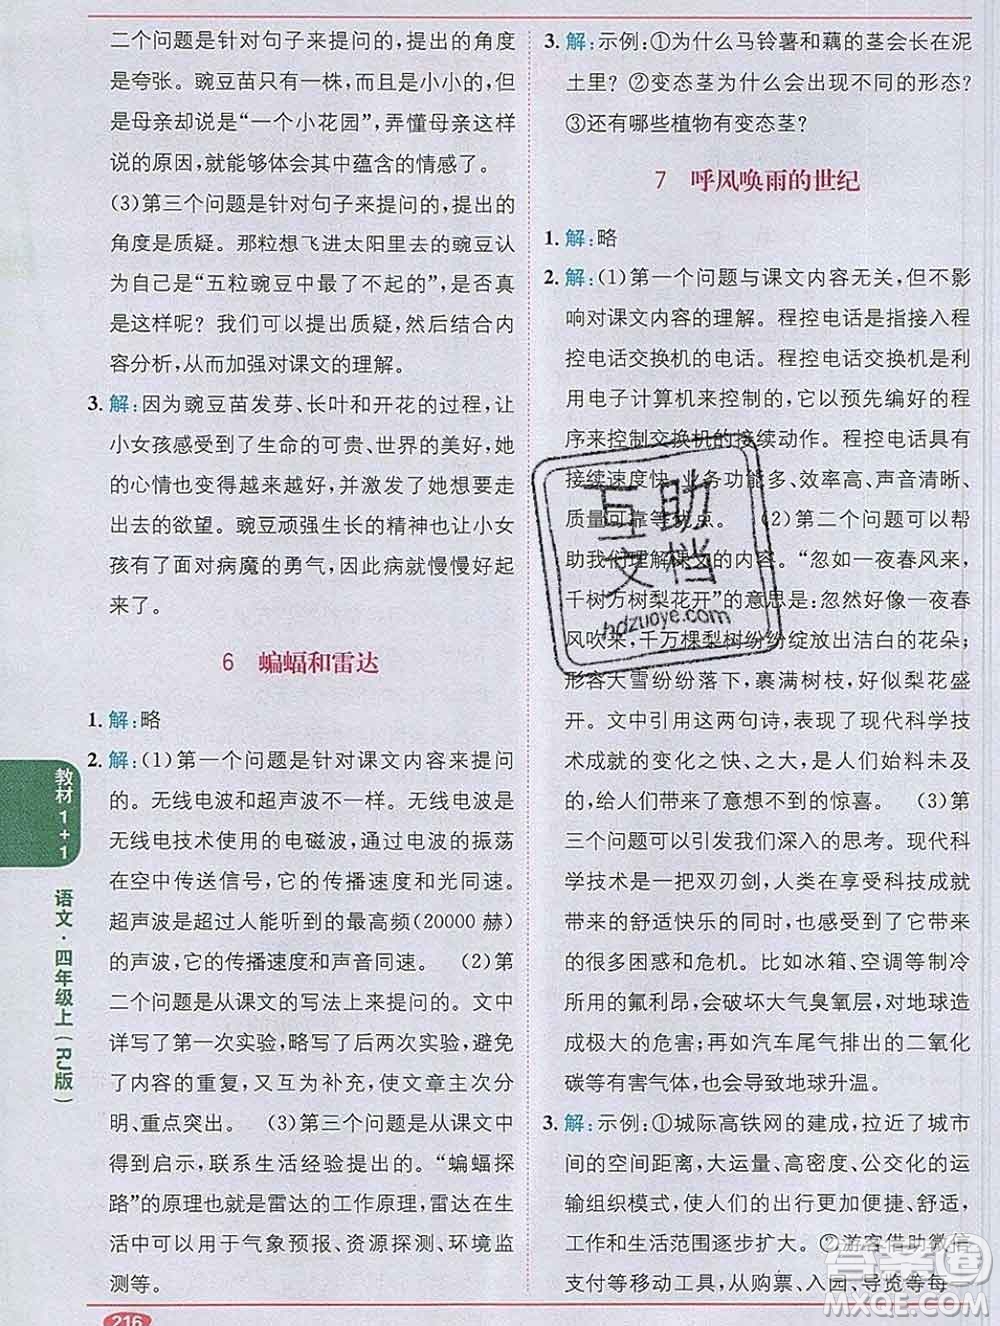 二个问题是针对句子来提问的,提出的角度
是夸张。豌豆苗只有一株,其实是小小的,但
是母亲却说是“一个小花园”,弄懂母亲这样
说的原因,就能够体会其中蕴含的情感了。
(3)第三个问题是针对句子来提问的,提出的
角度是质疑。那粒想飞进太阳里去的豌豆认
为自己是“五粒豌豆中最了不起的”,是否真
是这样呢?我们可以提出质疑,然后结合内容
分析,从而加强对课文的理解。
3. 解:因为豌豆苗发芽、长叶和开花的过程,让
小女孩感受到了生命的可贵、世界的美好,她
的心情也变得越来越好,并激发了她想要走
出去的欲望。豌豆顽强生长的精神也让小女
孩有了面对病魔的勇气,因此病就慢慢好起
来了。
6 蝙蝠和雷达
1. 解:略
2. 解:(1)第一个问题是针对课文内容来提问
的。无线电波和超声波不一样。无线电波是
无线电技术使用的电磁波,通过电波的振荡
在空中传送信号,它的传播速度和光同速。
超声波是超过人能听到的最高频(20000赫)
的声波,它的传播速度和声音同速。 (2)第
二个问题是从课文的写法上来提问的。文中
详写了第一次实验,略写了后两次实验,既有
重复,又互为补充,使文章主次分
明、重点突出。 (3)第三个问题是从课文中
得到启示,联系生活经验提出的。“蝙蝠探
路”的原理也就是雷达的工作原理,雷达在生
活中可以用于气象预报、资源探测、环境监
测等。
3. 解:示例:①为什么马铃薯和藕的茎会长在泥
土里?②变态茎为什么会出现不同的形态?
③还有哪些植物有变态茎?
7 呼风唤雨的世纪
1. 解:略
2. 解:(1)第一个问题与课文内容无关,但不影
响对课文内容的理解。程控电话是指接入程
控电话交换机的电话。程控电话交换机是利
用电子计算机来控制的,它以预先编好的程
序来控制交换机的接续动作。程控电话具有
接续速度快、业务功能多、效率高、声音清晰、
质量可靠等优点。 (2)第二个问题可以帮
助我们理解课文的内容。“忽如一夜春风来,
千树万树梨花开”的意思是:忽然好像一夜春
风吹来,千万棵梨树纷纷绽放出洁白的花朵;
形容大雪纷纷落下,裹满树枝,好似梨花盛
开。文中引用这两句诗,表现了现代科学技
术成就的变化之快、之大,是人们始料不及
的,给人们带来了意想不到的惊喜。 (3)第
三个问题可以引发我们深入的思考。现代科
学技术是一把双刃剑,人类在享受科技成果
带来的舒适快乐的同时,也受到了它带来
的很多困惑和危机。比如冰箱、空调等制冷
所用的氟利昂,会破坏大气臭氧层,对地球造
成极大的危害;再如汽车尾气排出的二氧化
碳等有害气体,也会导致地球升温。
3. 解:示例:①城际高铁网的建成,拉近了城市
间的空间距离,大运量、高密度、公交化的运
输组织模式,使人们的出行更加便捷、舒适,
工作和生活范围逐步扩大。②游客借助微信
支付等移动工具,从购票、入园、导览等每一
教材1+1
语文·四年级上(RJ版)
216
互助
文档
hdzuoye.com
答案圈
MXQE.COM